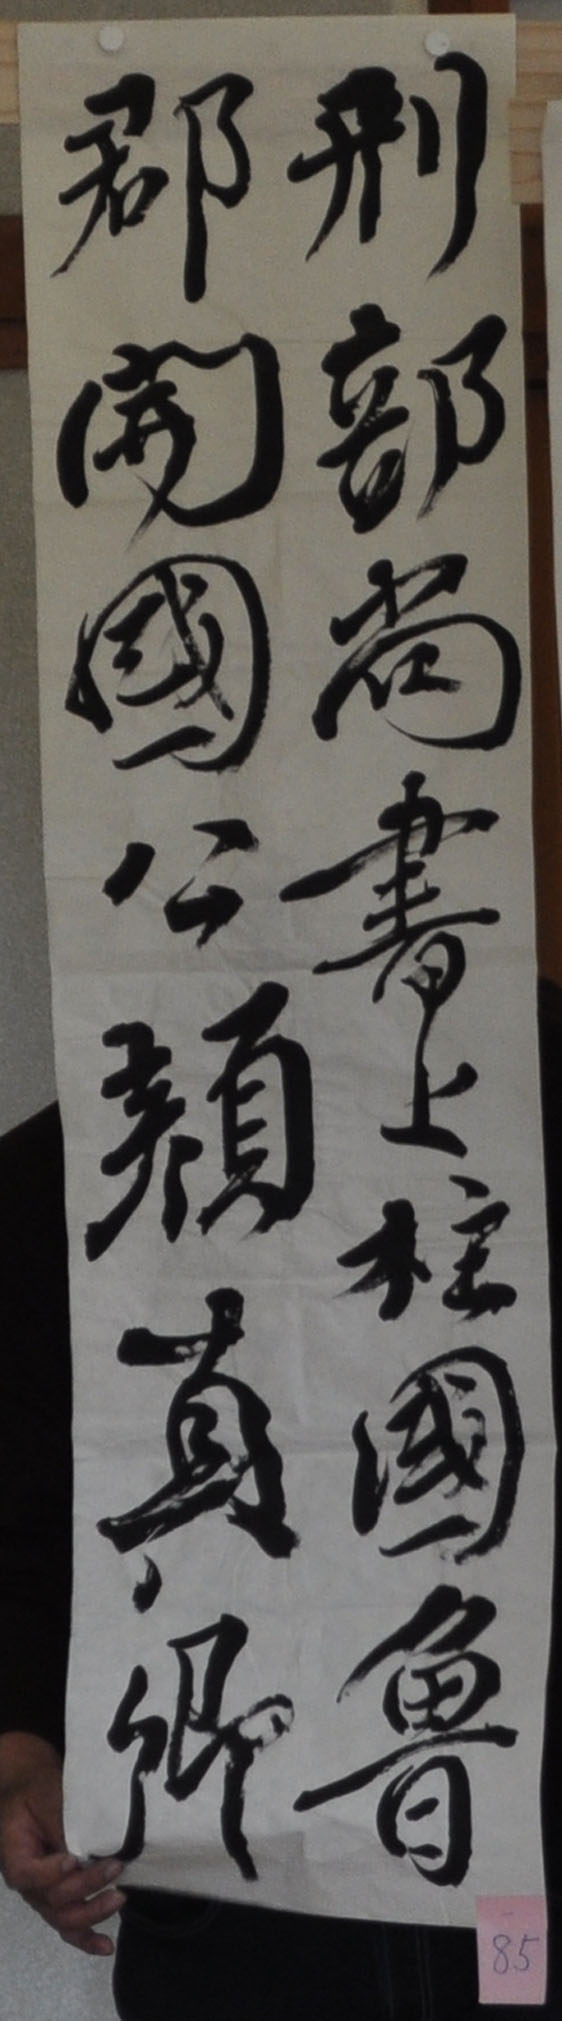 刑部尚書上柱國魯
郡開國公顏真卿
85